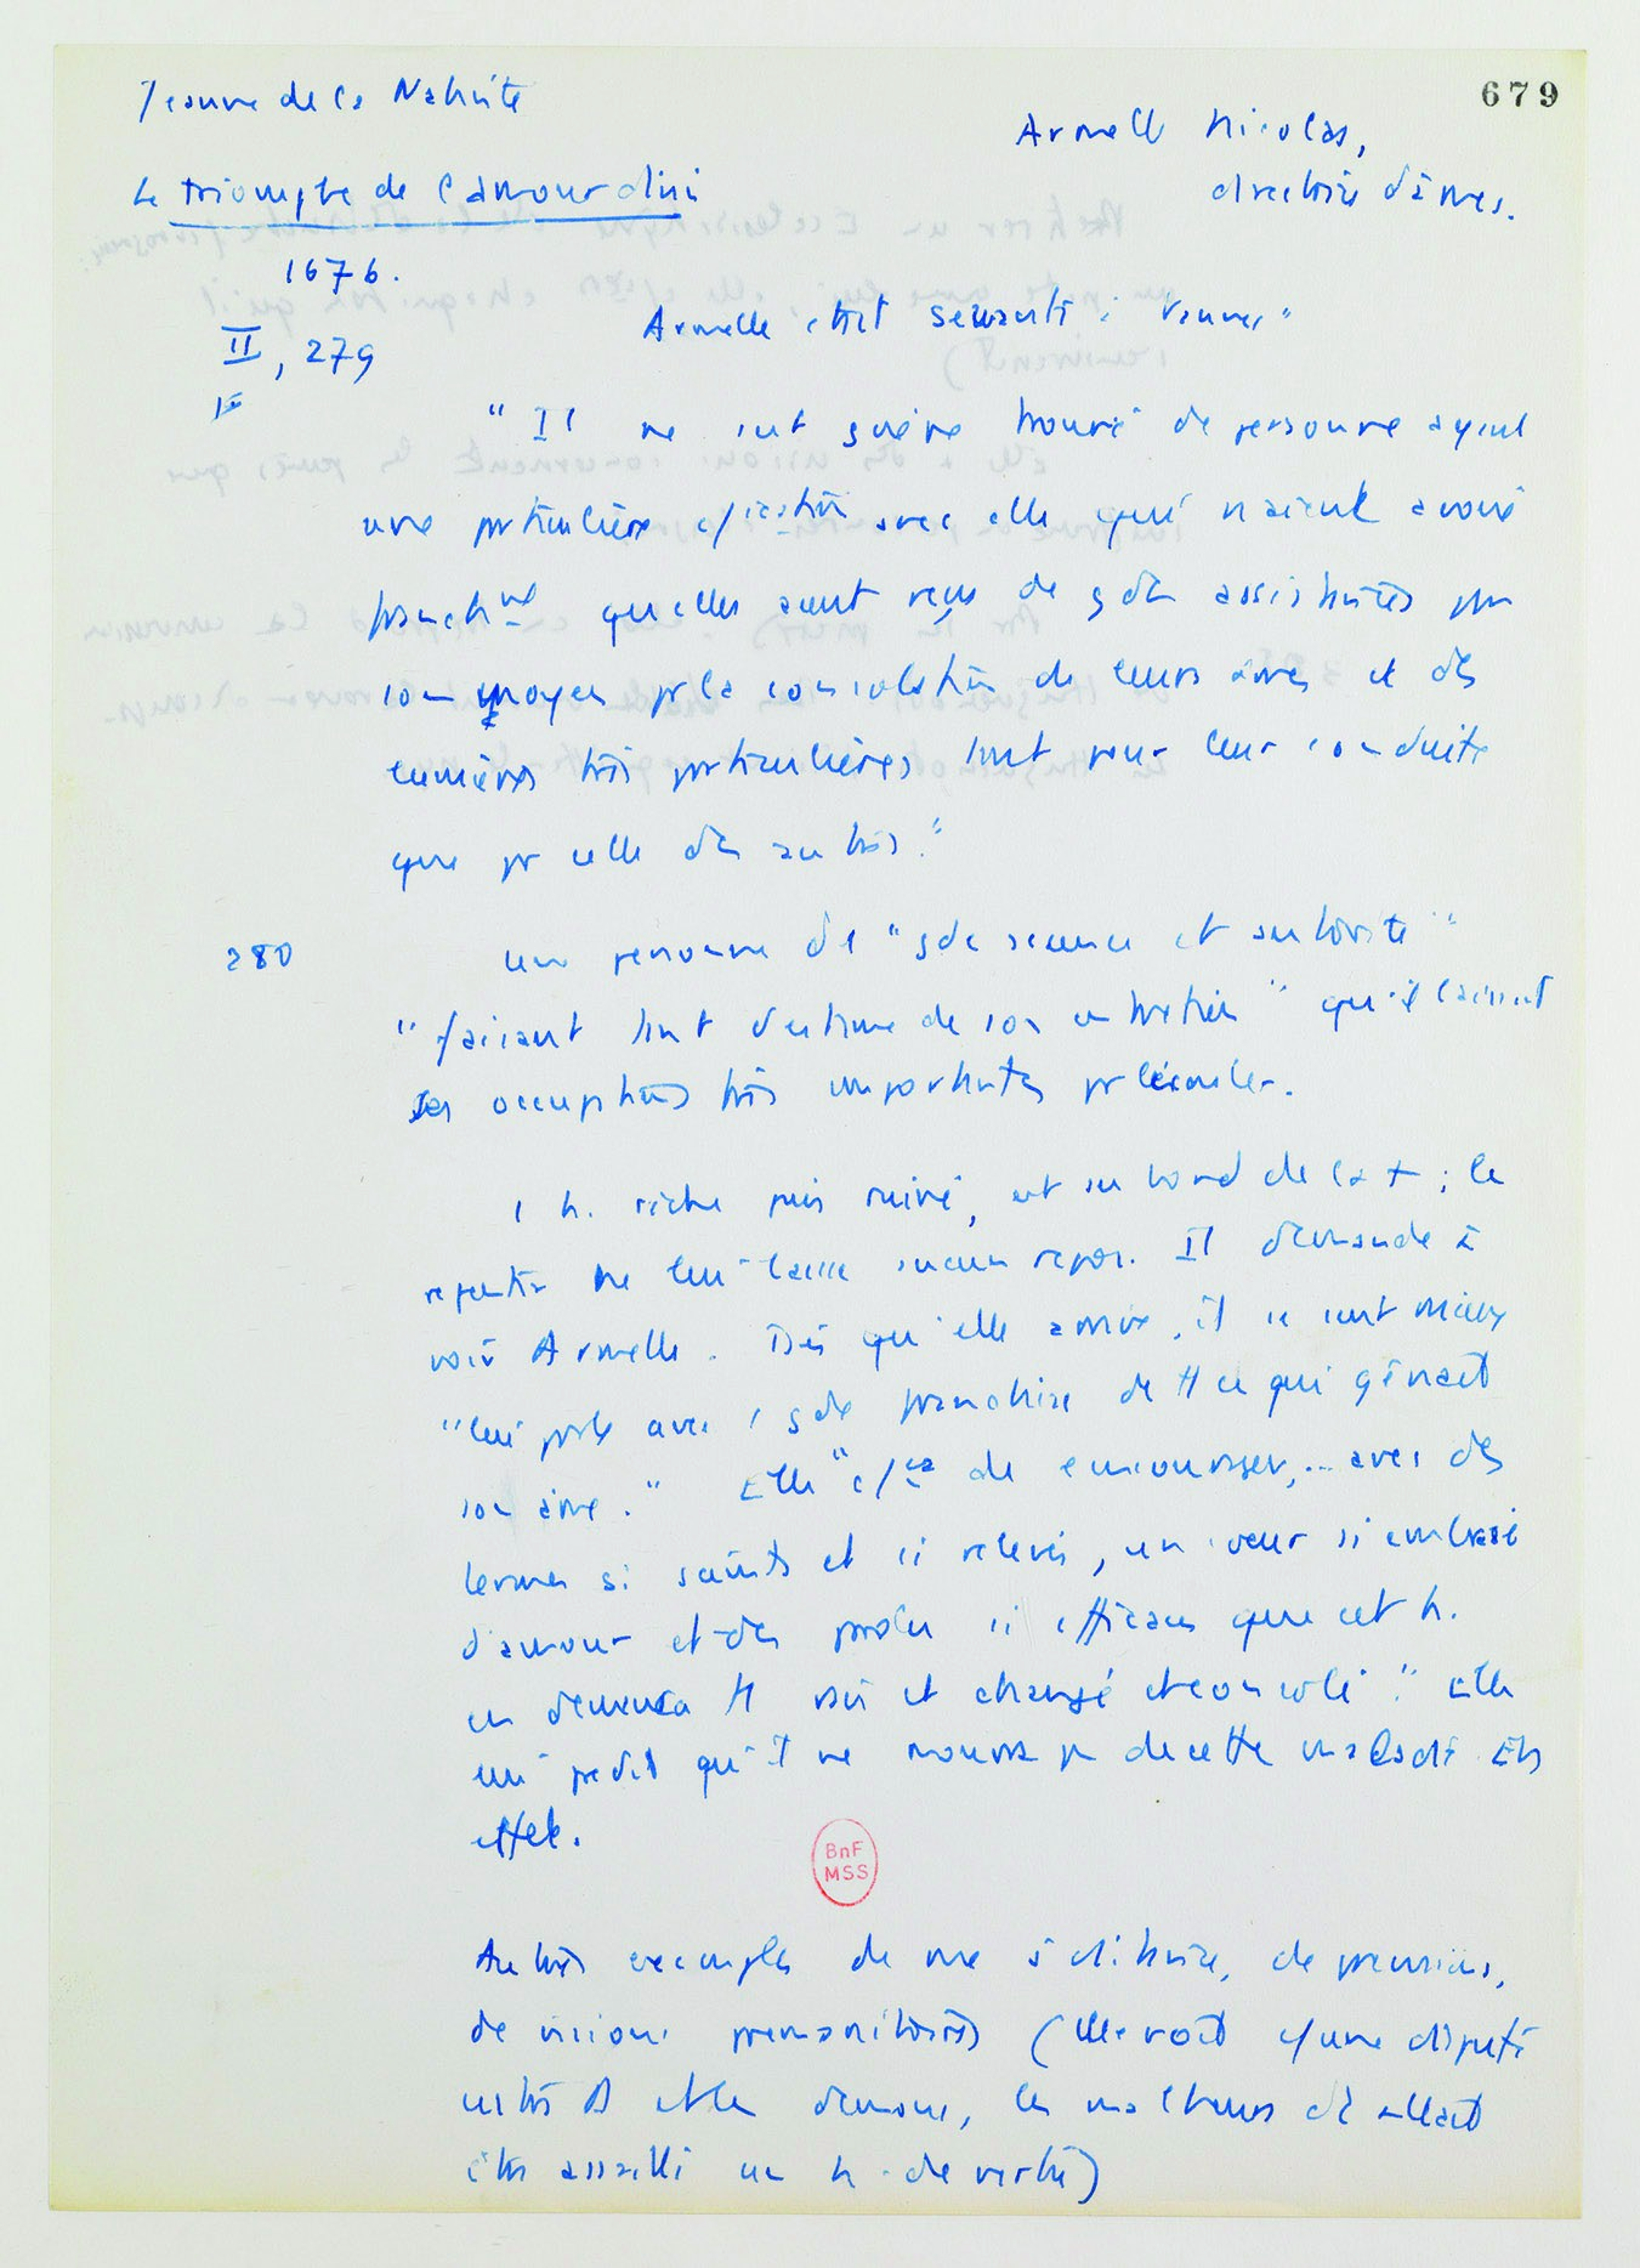 679
Jeanne de la Nativite
Armelle Nicolas,
directrice d'âmes.
Le triomphe de l'amour divin
1676.
II, 279
Armelle était servante à Vannes
"Il ne s'est guère trouvé de personne ayant
une particulière c/icatiōn avec elle qui n'aient avoué
franchmt qu'elles aient reçu de gdes assistances par
son moyen pr la consolatiōn de leurs âmes et des
lumières très particulières tant pour leur conduite
que pr celle des autres."
280
une personne de "gde science et autorité"
"faisant tant d'estime de son entretien" qu'il laissait
ses occupatiōns très importantes pr l'écouter.
1 h. riche puis ruiné, est au bord de la + ; le
repentir ne lui laisse aucun repos. Il demande à
voir Armelle. Dès qu'elle arrive, il se sent mieux
"lui parle avec 1 gde franchise de tt ce qui gênait
son âme." Elle "c/ça de encourager,... avec des
termes si saints et si relevés, un cœur si embrasé
d'amour et des paroles si efficaces que cet h.
en demeura tt ravi et changé et consolé." Elle
lui prédit qu'il ne mourra pas de cette maladie. En
effet.
BnF
MSS
Autres exemples de de
de visions prémonitoires (elle voit c/une dispute
entre D et les démons, les malheurs dt allait
être assailli un h. de vertu)